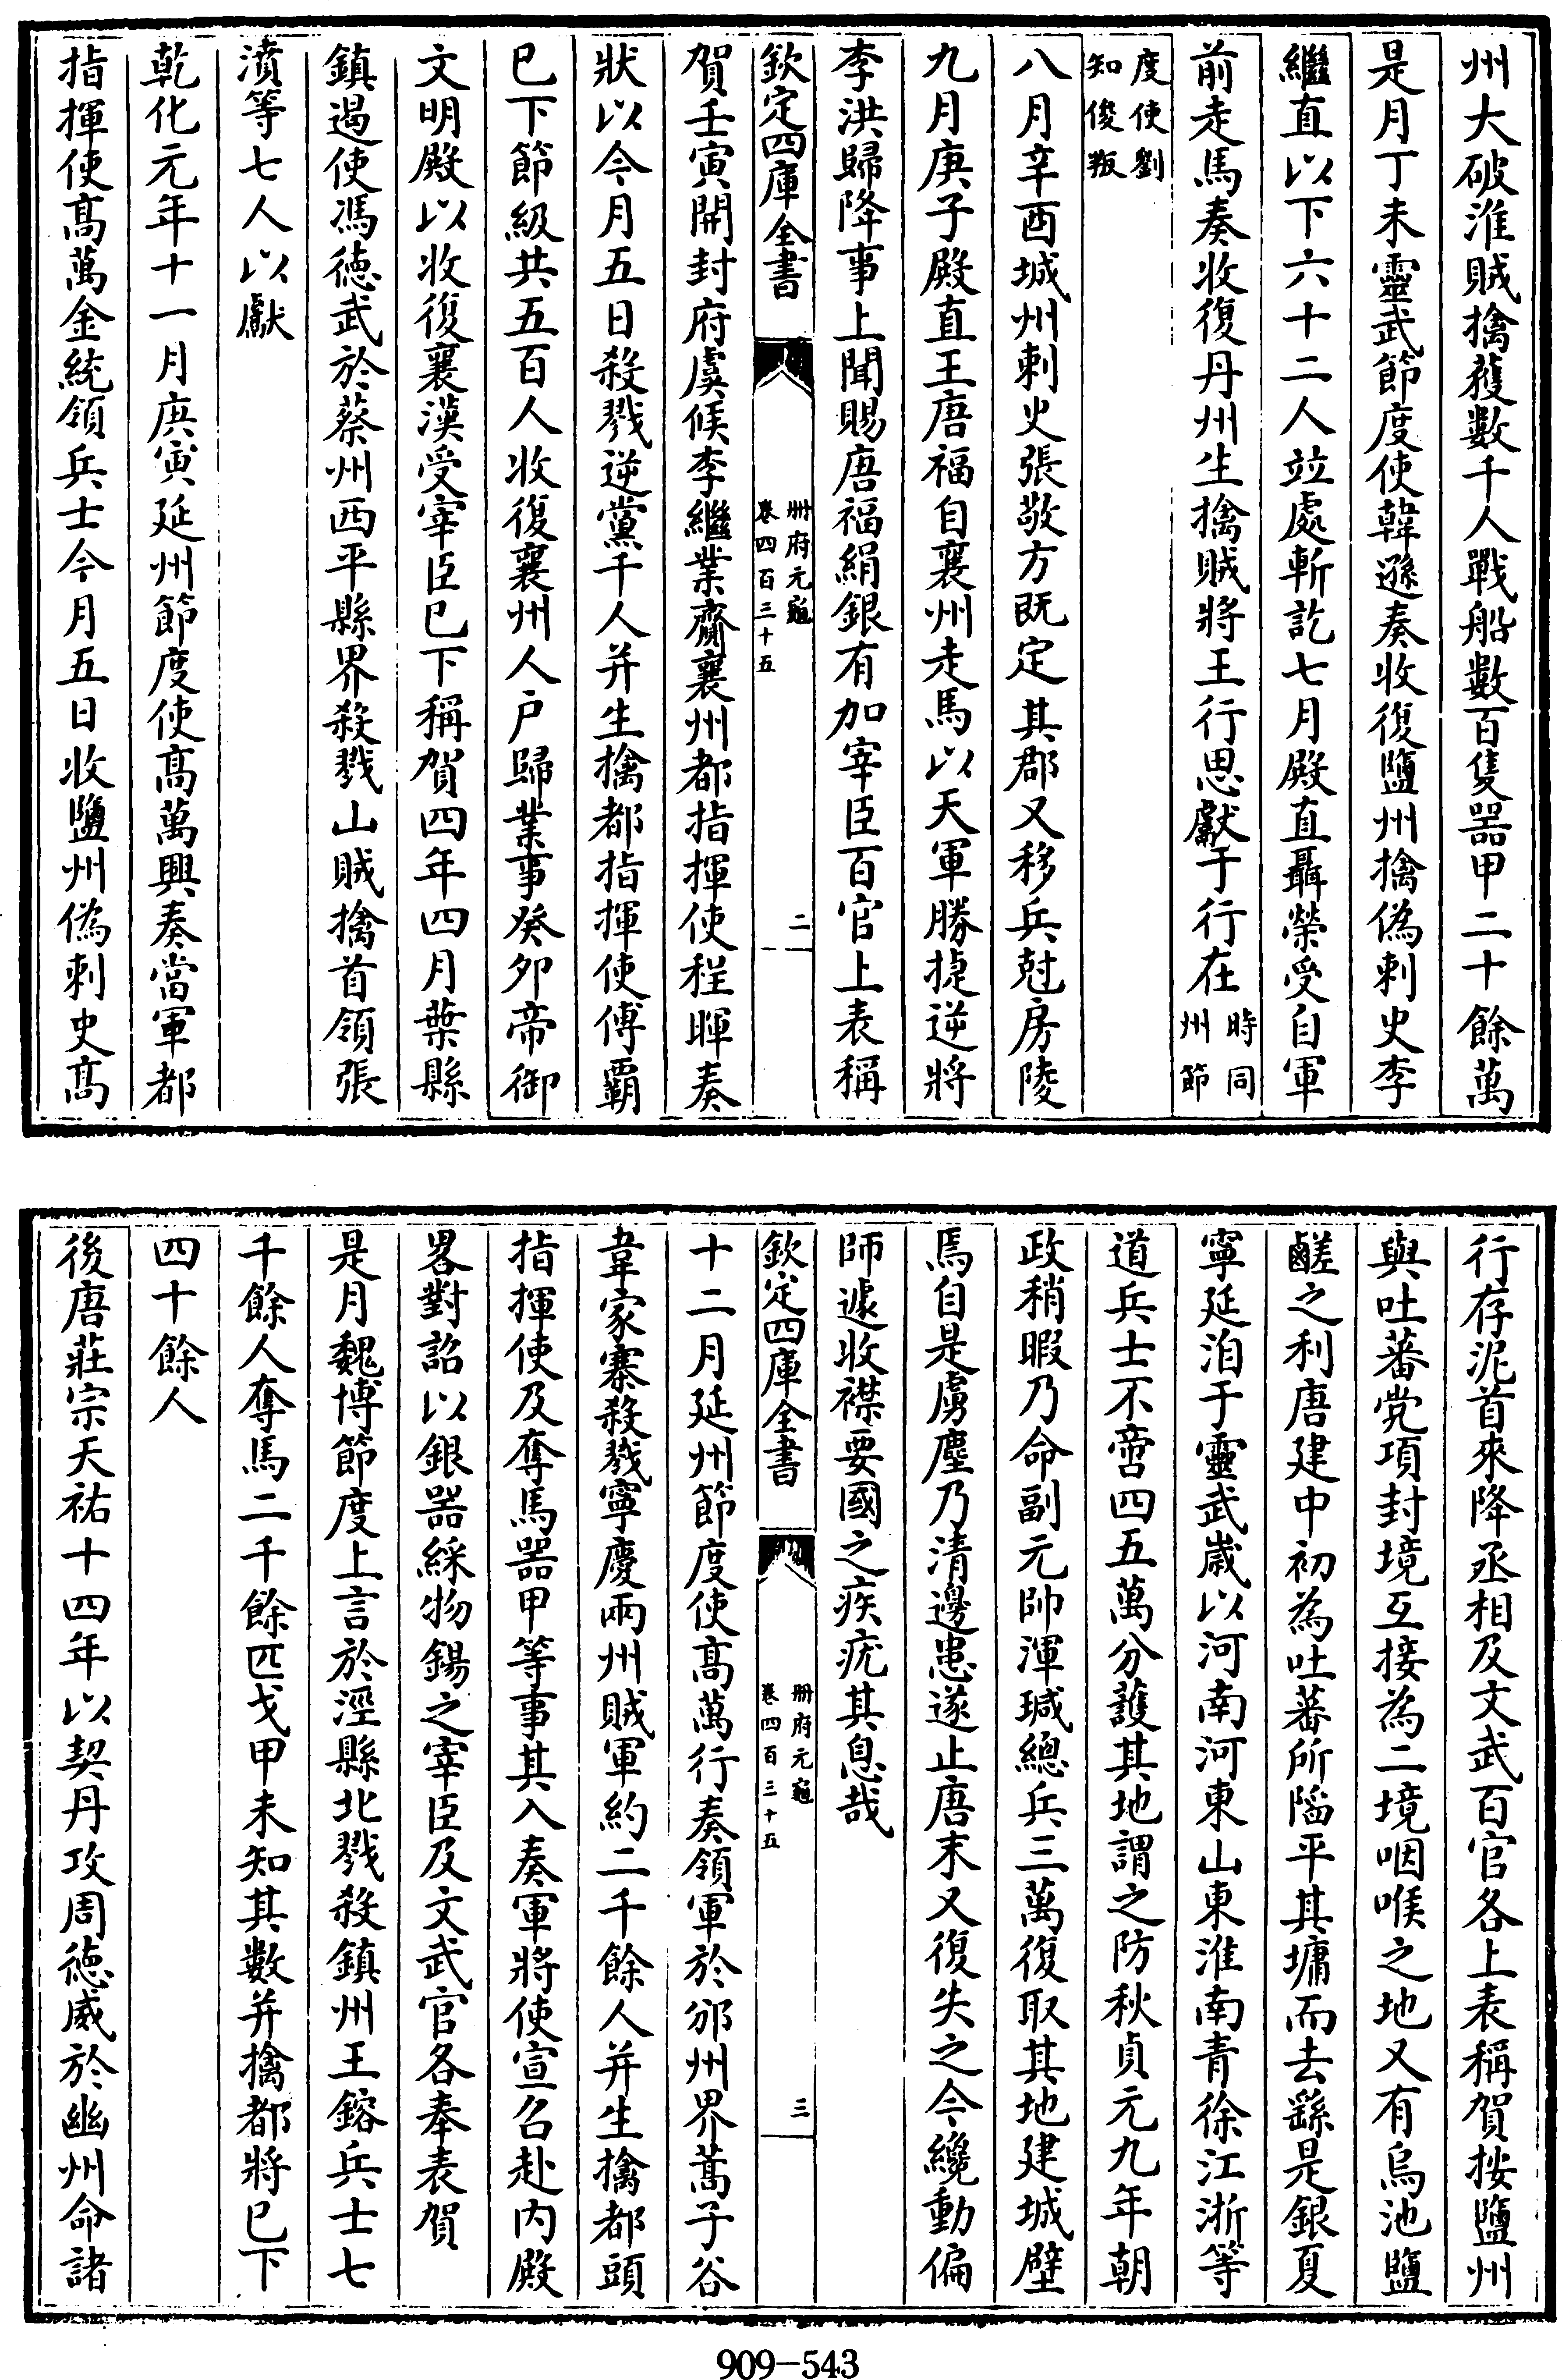 州大破淮賊擒獲數千人戰船數百隻器甲二十餘萬
是月丁未靈武節度使韓遜奏收復鹽州擒偽刺史李
繼直以下六十二人竝處斬訖七月殿直聶榮受自軍
前走馬奏收復丹州生擒賊將王行思獻于行在時同州節
度使劉知俊叛
八月辛酉城州刺史張敬方既定其郡又移兵尅房陵
九月庚子殿直王唐福自襄州走馬以天軍勝捷逆將
李洪歸降事上聞賜唐福絹銀有加宰臣百官上表稱
欽定四庫全書 冊府元龜 卷四百三十五 二
賀壬寅開封府虞候李繼業齎襄州都指揮使程暉奏
狀以今月五日殺戮逆黨千人并生擒都指揮使傅霸
巳下節級共五百人收復襄州人户歸業事癸夘帝御
文明殿以收復襄漢受宰臣巳下稱賀四年四月葉縣
鎮遏使馮徳武於蔡州西平縣界殺戮山賊擒首領張
濆等七人以獻
乾化元年十一月庚寅延州節度使髙萬興奏當軍都
指揮使髙萬金統領兵士今月五日收鹽州偽刺史髙
行存泥首來降丞相及文武百官各上表稱賀按鹽州
與吐蕃党項封境互接為二境咽喉之地又有烏池鹽
鹺之利唐建中初為吐蕃所陷平其墉而去繇是銀夏
寧延洎于靈武歲以河南河東山東淮南青徐江浙等
道兵士不啻四五萬分護其地謂之防秋貞元九年朝
政稍暇乃命副元帥渾瑊總兵三萬復取其地建城壁
焉自是虜塵乃清邊患遂止唐末又復失之今纔動偏
師遽收襟要國之疾疣其息哉
欽定四庫全書 冊府元龜 卷四百三十五 三
十二月延州節度使髙萬行奏領軍於邠州界蒿子谷
韋家寨殺戮寧慶兩州賊軍約二千餘人并生擒都頭
指揮使及奪馬器甲等事其入奏軍將使宣召赴内殿
畧對詔以銀器綵物錫之宰臣及文武官各奉表賀
是月魏博節度上言於涇縣北戮殺鎮州王鎔兵士七
千餘人奪馬二千餘匹戈甲未知其數并擒都將巳下
四十餘人
後唐莊宗天祐十四年以契丹攻周徳威於幽州命諸
909-543